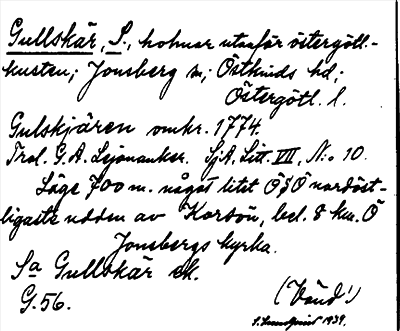 Gullskär, S., holmar utanför östergötl.-
kusten; Jonsberg sn; Östkinds hd;
Östergötl. l.
Gulskjären omkr. 1774.
Trol. G.A. Lejonanker. SjA, Litt. VII, N:o 10.
Läge 700 m. något litet ÖSÖ nordöst-
ligaste udden av Korsön, bel. 8 km. Ö
Jonsbergs kyrka.
Sa Gullskär ek.
G. 56.
(Vänd!)
1939.